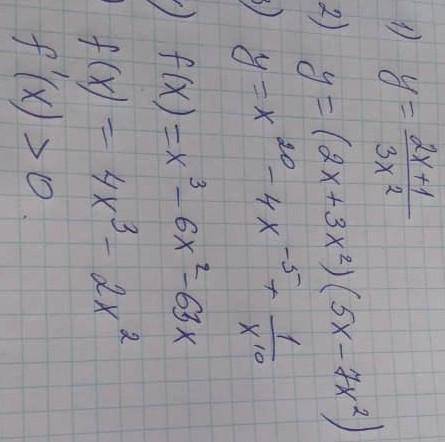 1) y = \frac{2x+1}{3x^2}
2) y = (2x+3x²)(5x-7x²)
3) y = x²⁰ - 4x⁻⁵ + \frac{1}{x¹⁰}
f(x) = x³ - 6x² - 63x
f(x) = 4x³ - 2x²
f'(x) > 0.